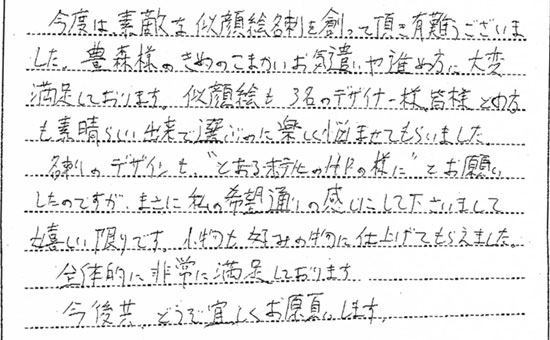 今度は素敵な似顔絵名刺を創って頂き有難うございま
した。豊森様のきめのこまかいお気遣いや進め方に大変
満足しております。似顔絵も3名のデザイナー様皆様との方
も素晴らしい出来で選ぶのに楽しく悩ませてもらいました。
名刺のデザインも、"とあるホテルのHPの様に"とお願い
したのですが、まさに私の希望通りの感じにして下さいまして
嬉しい限りです。小物も好みの物に仕上げてもらえました。
全体的に非常に満足しております
今後共、どうぞ宜しくお願いします。